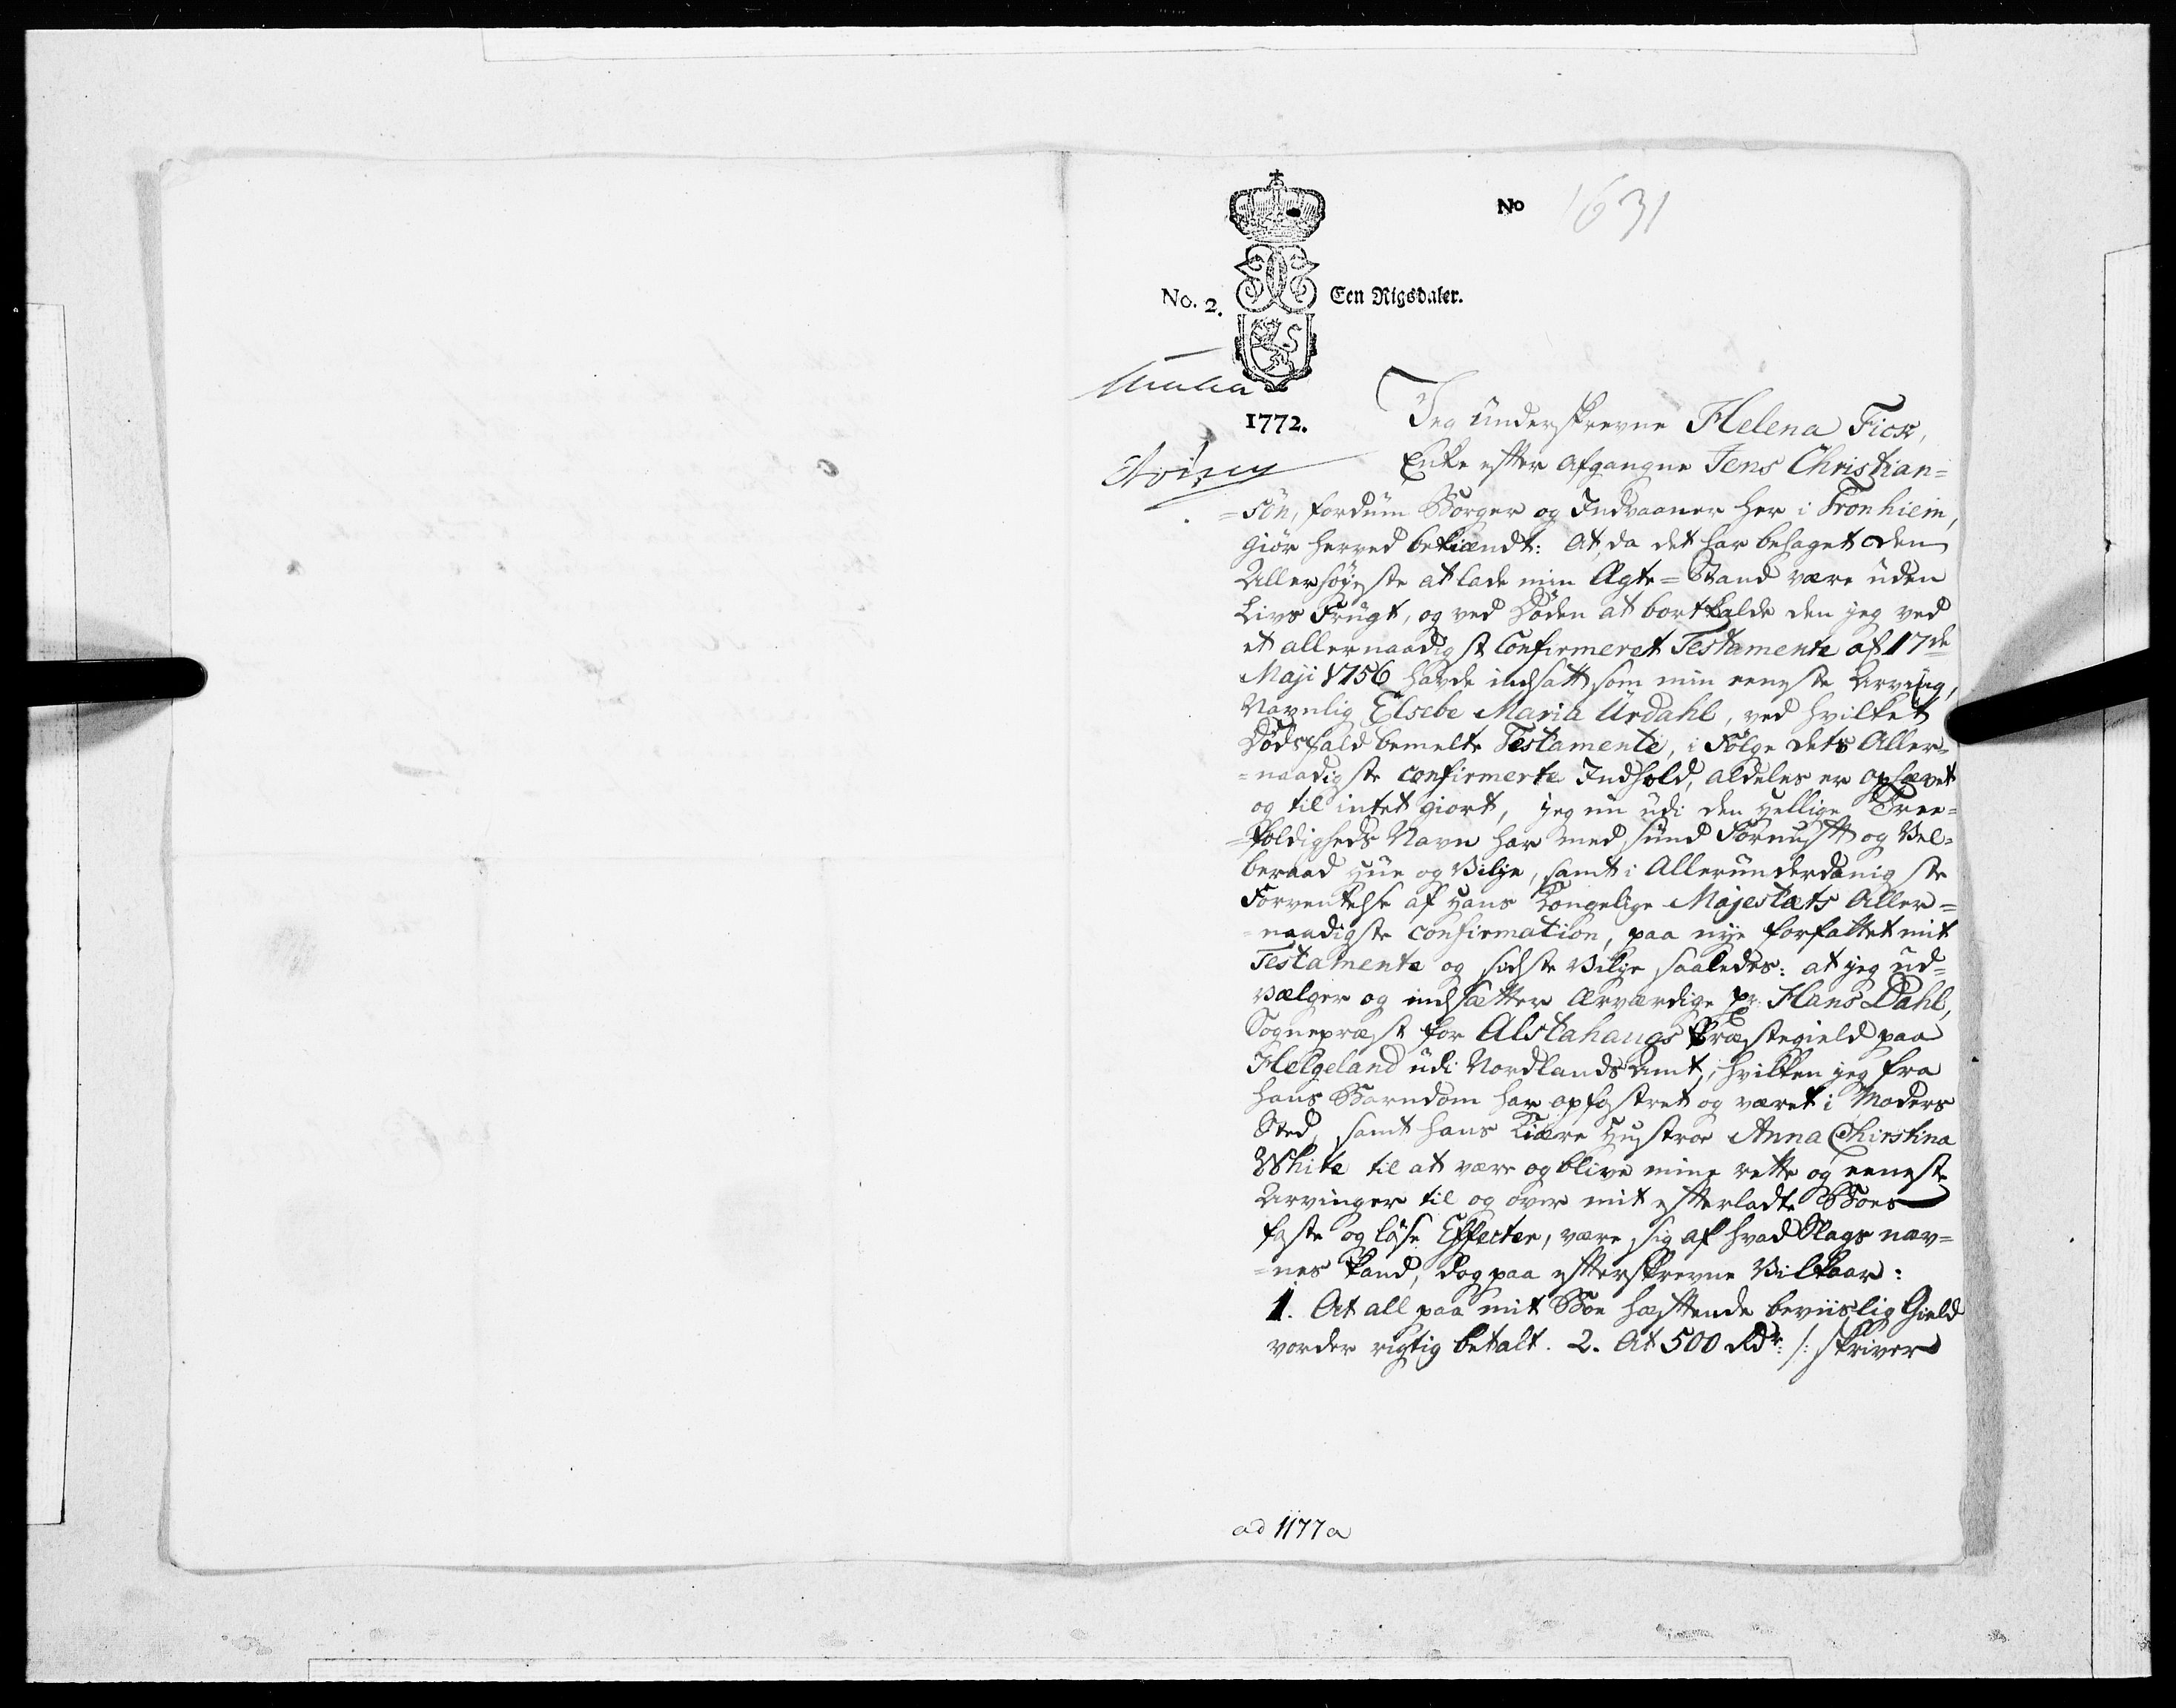 No 1631
No. 2. Een Rigsdaler.
1772.
Jeg underskrevne Helena Fick,
Enke efter afgangne Jens Christian=
=sön, fordum Borger og Indvaaner her i Tronhiem,
giör herved bekiændt: At, da det har behaget den
Allerhöyeste at lade min Ægte=Stand være uden
Livs Frugt, og ved Döden at bortkalde den jeg ved
et allernaadigst Confirmeret Testamente af 17de
Maji 1756 havde indsatt som min eeneste Arving,
Navnlig Elsebe Maria Urdahl, ved hvilket
Dödsfald bemelte Testamente, i Fölge dets Aller=
=naadigste confirmerte Indhold, aldeles er ophævet
og til intet giort, jeg nu udi den Hellige Tree=
=foldigheds Navn har med sund Fornuft og Vel=
beraad Hue og Vilje, samt i Allerunderdanigste
Forventelse af Hans Kongelige Majestæts Aller=
=naadigste confirmation, paa nye forfattet mit
Testamente og sidste Vilje saaledes: at jeg ud=
vælger og indsætter Ærværdige Hr: Hans Dahl,
Sognepræst for Alstahaugs Præstegield paa
Helgeland udi Nordlands Amt, hvilken jeg fra
hans Barndom har opfostret og været i Moders
Sted, samt hans Kiære Hustroe Anna Chirstina
White til at være og blive mine rette og eeneste
Arvinger til og over mit efterladte Boes
faste og löse Effecter, være sig af hvad Slags næv=
=nes kand, dog paa efterskrevne Vilkaar:
1. At all paa mit Boe hæftende beviislig Gield
vorder rigtig betalt. 2. At 500 Rdr: /: skriver
ad 1177a